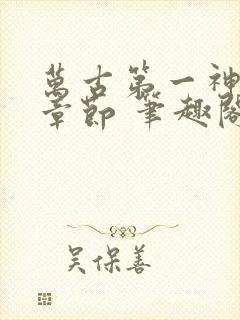 萬古第一神
章節 筆趣閣
吳保善